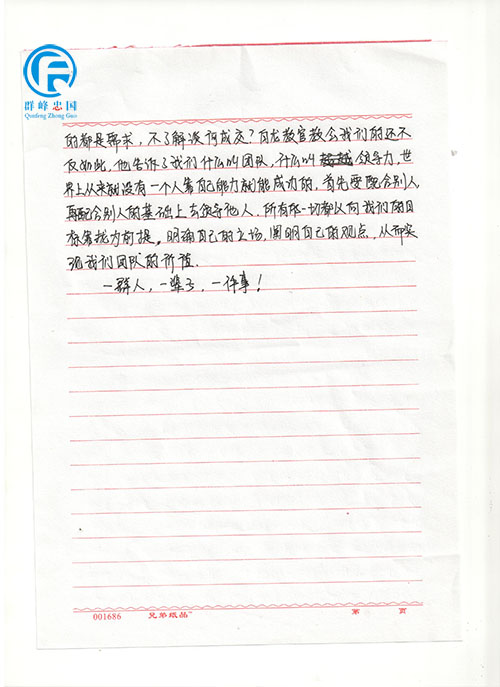 群峰忠国
Qunfeng Zhong Guo
的都是需求，不了解谈何成交？向龙教官教会我们的还不
仅如此，他告诉了我们什么叫团队，什么叫领导力，世
界上从来就没有一个人靠自己能力就能成功的，首先要配合别人，
再配合别人的基础上去领导他人，所有的一切都以向我们的目
标靠拢为前提。明确自己的立场，阐明自己的观点，从而实
现我们团队的价值。
一群人，一辈子，一件事！
001686 兄弟纸品 第 页